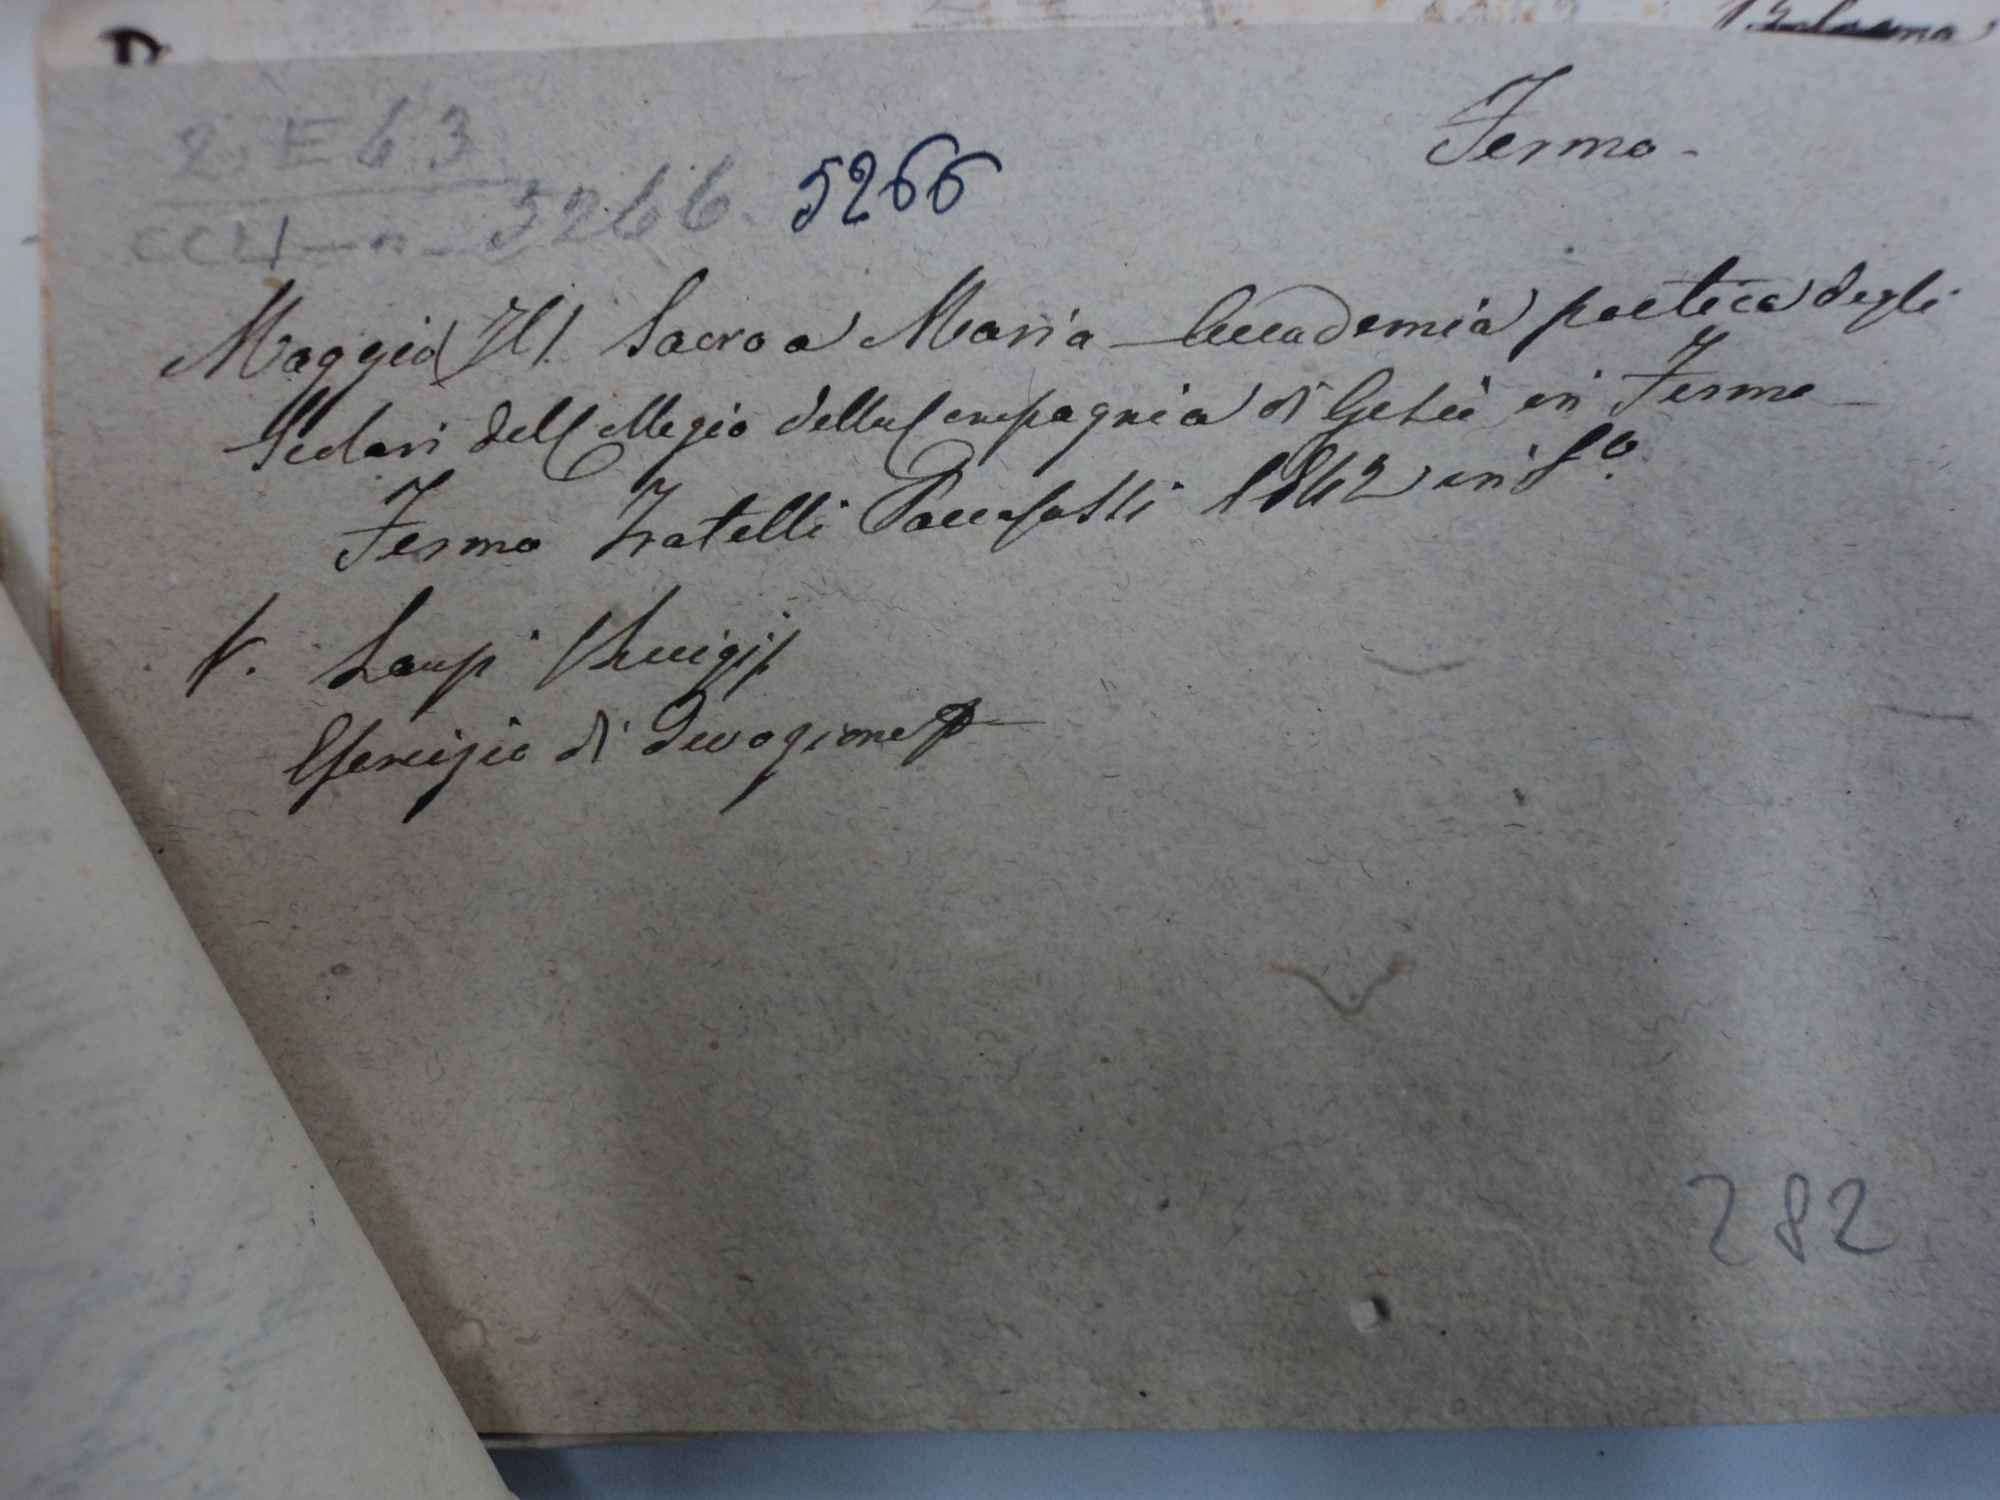 Fermo -
2. E 63
CCLI - n - 5266. 5266
Maggio (Il) Sacro a Maria - Accademia poetica degli
Scolari del Collegio della Compagnia di Gesù in Fermo -
Fermo Fratelli Paccasassi 1842 in 8º.
V. Lanzi (Luigi)
Esercizio di devozione
282